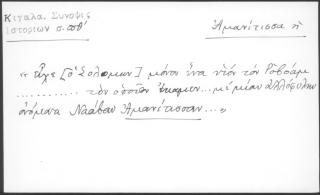 Κιγάλα. Σύνοψις
Ἱστοριῶν σ. οθ΄
Ἀμανίτισσα ἡ
« εἶχε [ὁ Σολομων] μόνον ἕνα υἱόν τόν Ῥοβοάμ
.......... τόν ὁποῖον ἔκαμεν... μέ μίαν ἀλλόφυλην
ὀνόματι Ναάβαν Ἀμανίτισσαν... »